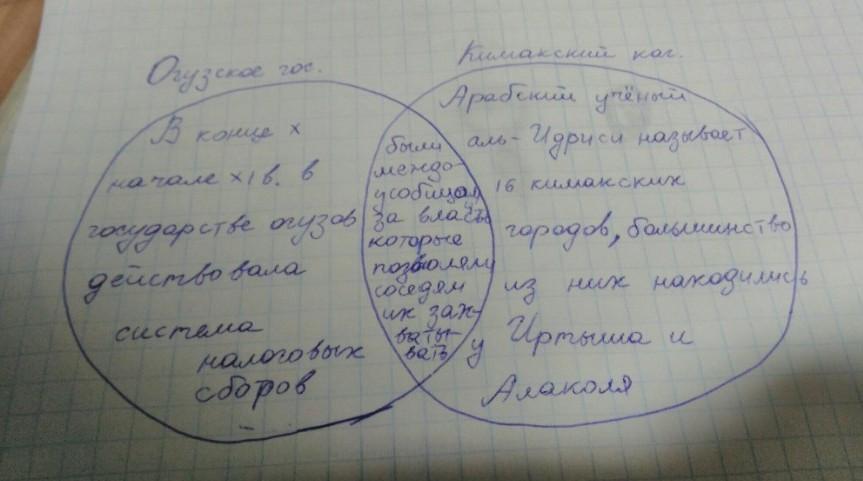 Огузское гос.
В конце х
начале хı в. в
государстве огузов
действовала
система
налоговых
сборов
были
междо-
усобицы
за власть
которые
позволяли
соседям
их зах-
ваты-
вать
Кимакский каг.
Арабский учёный
аль-Идриси называет
16 кимакских
городов, большинство
из них находились
у Иртыша и
Алаколя